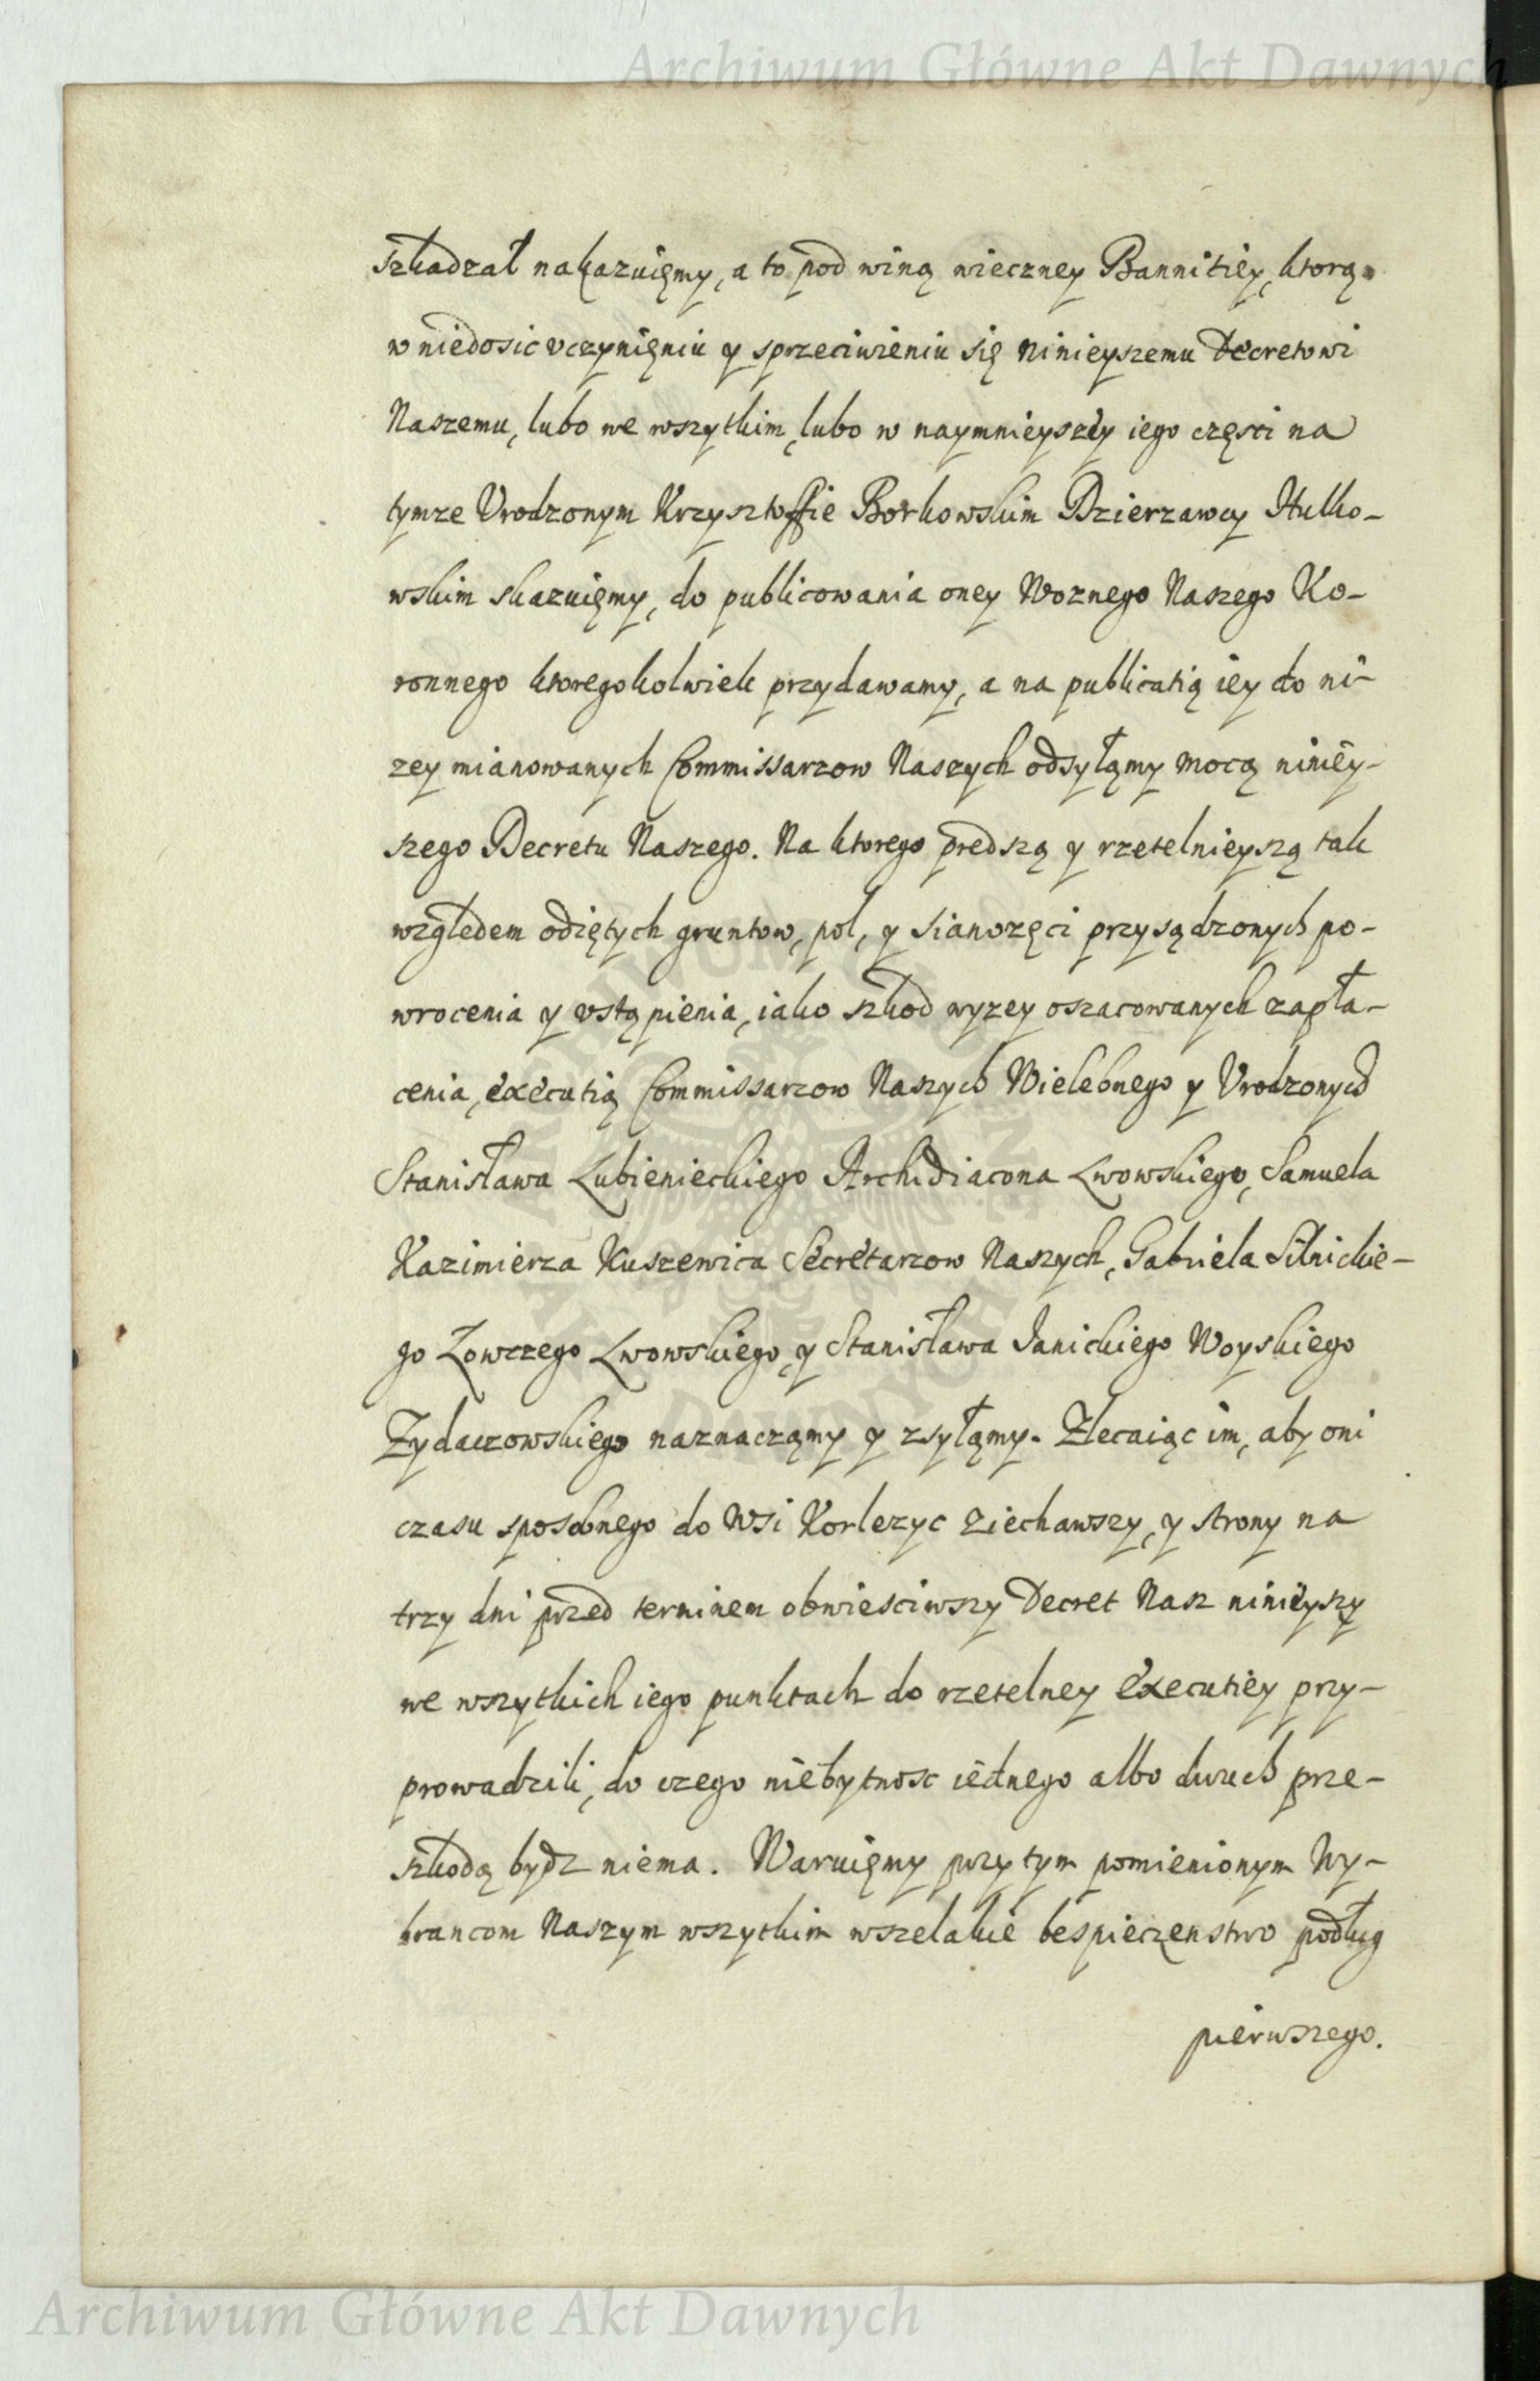 Archiwum Główne Akt Dawnych
szkadzał nakazuięmy, a to pod winą wieczney Bannitiey, ktorą
w niedosic vczynięniu y sprzeciwieniu się ninieyszemu Decretowi
Naszemu, lubo we wszytkim, lubo w naymnieyszey iego częsci na
tymze Vrodzonym Krzysztoffie Borkowskim Dzierzawcy Hulko-
wskim skazuięmy, do publicowania oney Woznego Naszego Ko-
ronnego ktoregokolwiek przydawamy, a na publicatią iey do ni-
zey mianowanych Commissarzow Naszych odsyłąmy mocą niniey-
szego Decretu Naszego. Na ktorego predszą y rzetelnieyszą tak
względem odiętych gruntow, pol, y sianozęci przysądzonych po-
wrocenia y vstąpienia, iako szkod wyzey oszacowanych zapła-
cenia, executią Commissarzow Naszych Wielebnego y Vrodzonych
Stanisława Lubienieckiego Archidiacona Lwowskiego, Samuela
Kazimierza Kuszewica Secretarzow Naszych, Gabriela Silnickie-
go Łowczego Lwowskiego, y Stanisława Janickiego Woyskiego
Zydaczowskiego naznacząmy y zsyłąmy. Zlecaiąc im, aby oni
czasu sposobnego do Wsi Korlezyc ziechawszy, y strony na
trzy dni przed terminem obwiesciwszy Decret Nasz ninieyszy
we wszytkich iego punktach do rzetelney executiey przy-
prowadzili, do czego niebytnosc iednego albo dwuch prze-
szkodą bydz niema. Waruięmy przy tym pomienionym Wy-
brancom Naszym wszytkim wszelakie bespieczenstwo podług
pierwszego.
Archiwum Główne Akt Dawnych